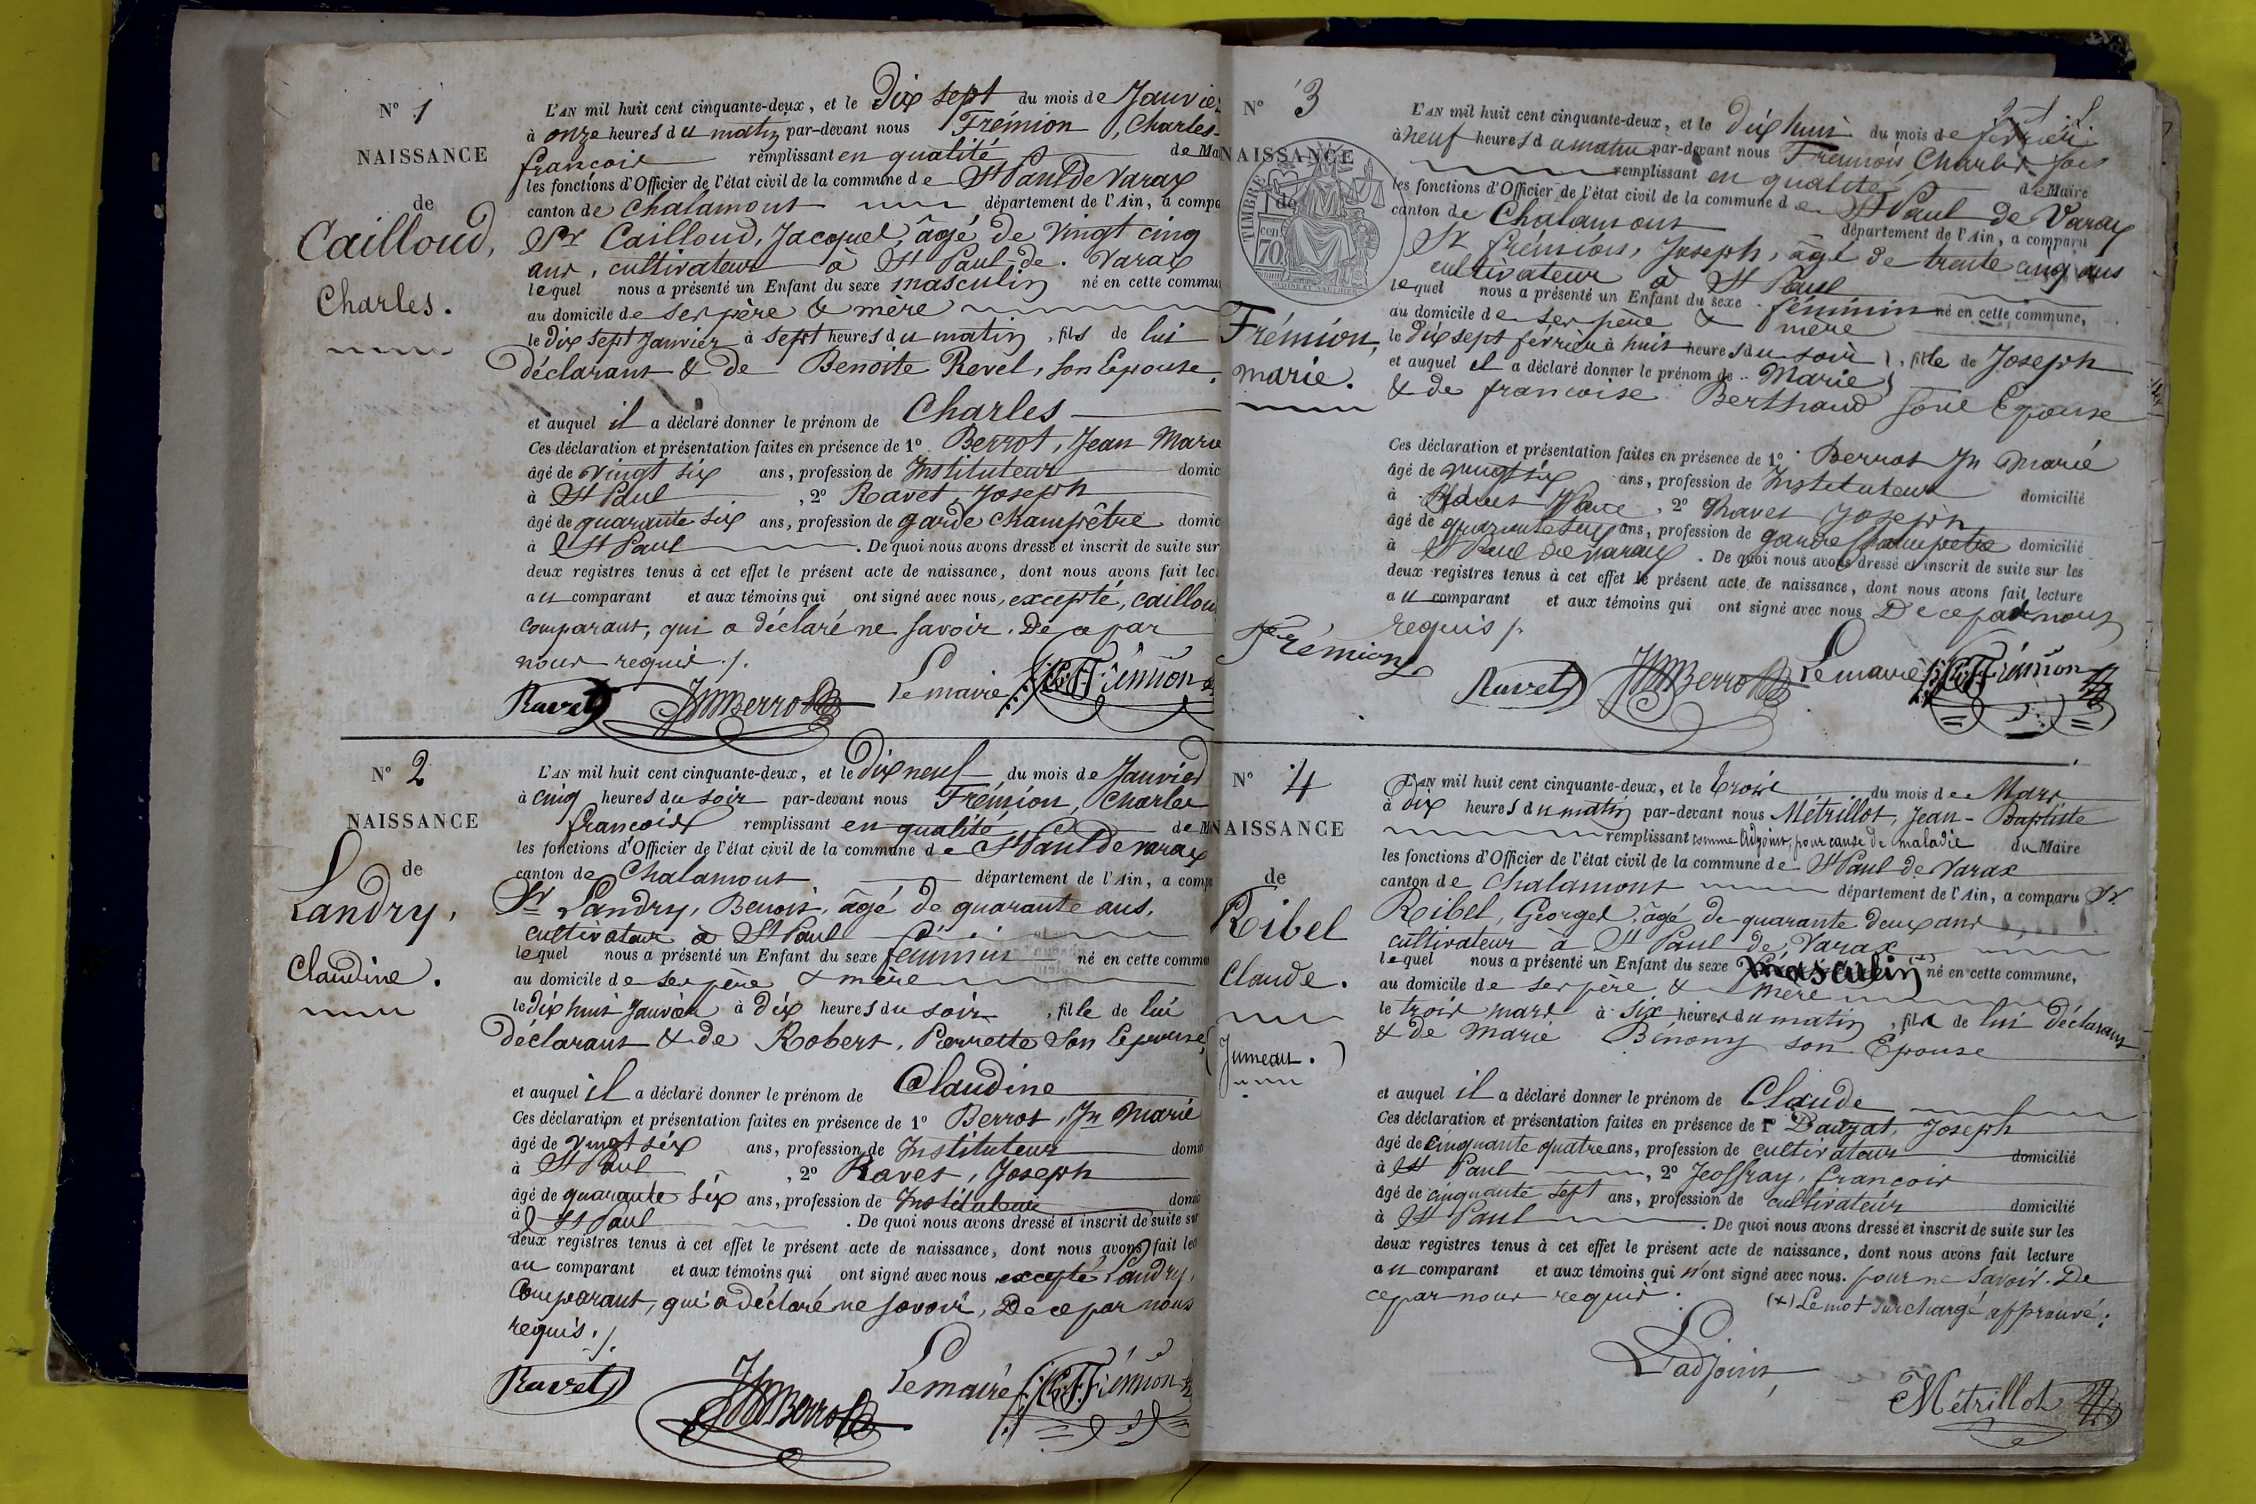 N° 1
NAISSANCE
de
Cailloud,
Charles.
L'AN mil huit cent cinquante-deux, et le Dix sept du mois de Janvier
à onze heures du matin par-devant nous Frémion, Charles-
françois remplissant en qualité de Ma
les fonctions d'Officier de l'état civil de la commune de St Paul de Varax
canton de Chalamont département de l'Ain, a compa
Sr Cailloud, Jacques, âgé de vingt cinq
ans, cultivateur à St Paul de Varax
lequel nous a présenté un Enfant du sexe masculin né en cette commu
au domicile de ses père & mère
le dix sept Janvier à sept heures du matin, fils de lui
déclarant & de Benoite Revel, son Epouse,
et auquel il a déclaré donner le prénom de Charles
Ces déclaration et présentation faites en présence de 1° Berrot, Jean Marie
âgé de vingt six ans, profession de Instituteur domic
à St Paul, 2° Ravet, Joseph
âgé de quarante six ans, profession de garde champêtre domic
à St Paul. De quoi nous avons dressé et inscrit de suite sur
deux registres tenus à cet effet le présent acte de naissance, dont nous avons fait lec
au comparant et aux témoins qui ont signé avec nous, excepté, Caillou
comparant, qui a déclaré ne savoir. De ce par
nous requis ./.
Ravet JM Berrot Le maire Ch. F. Frémion
N° 2
NAISSANCE
de
Landry,
Claudine.
L'AN mil huit cent cinquante-deux, et le Dix neuf du mois de Janvier
à cinq heures du soir par-devant nous Frémion, Charles
françois remplissant en qualité de M
les fonctions d'Officier de l'état civil de la commune de St Paul de Varax
canton de Chalamont département de l'Ain, a comp
Sr Landry, Benoit, âgé de quarante ans,
cultivateur à St Paul
lequel nous a présenté un Enfant du sexe féminin né en cette commu
au domicile de ses père & mère
le dix huit Janvier à dix heures du soir, fille de lui
déclarant & de Robert, Pierrette son Epouse,
et auquel il a déclaré donner le prénom de Claudine
Ces déclaration et présentation faites en présence de 1° Berrot, Jn Marie
âgé de vingt six ans, profession de Instituteur domic
à St Paul, 2° Ravet, Joseph
âgé de quarante six ans, profession de Instituteur domic
à St Paul. De quoi nous avons dressé et inscrit de suite sur
deux registres tenus à cet effet le présent acte de naissance, dont nous avons fait lec
au comparant et aux témoins qui ont signé avec nous excepté Landry,
Comparant, qui a déclaré ne savoir, De ce par nous
requis ./.
Ravet JM Berrot Le maire Ch. F. Frémion
N° 3
NAISSANCE
de
TIMBRE
70
Frémion,
marie.
L'AN mil huit cent cinquante-deux, et le Dix huit du mois de février
à neuf heures du matin par-devant nous Frémion, Charles
remplissant en qualité de Maire
les fonctions d'Officier de l'état civil de la commune de St Paul de Varax
canton de Chalamont département de l'Ain, a comparu
Sr frémion, Joseph, âgé de trente cinq ans
cultivateur à St Paul
lequel nous a présenté un Enfant du sexe féminin né en cette commune,
au domicile de ses père & mère
le dix sept février à huit heures du soir, fille de Joseph
et auquel il a déclaré donner le prénom de Marie
& de françoise Berthaud son Epouse
Ces déclaration et présentation faites en présence de 1° Berrot Jn Marie
âgé de vingt six ans, profession de Instituteur domicilié
à, 2° Ravet Joseph
âgé de quarante six ans, profession de garde champetre domicilié
à St Paul de Varax. De quoi nous avons dressé et inscrit de suite sur les
deux registres tenus à cet effet le présent acte de naissance, dont nous avons fait lecture
au comparant et aux témoins qui ont signé avec nous De ce par nous
requis ./.
Frémion
Ravet JM Berrot Le maire Ch. F. Frémion
N° 4
NAISSANCE
de
Ribel
Claude.
(Jumeau.)
L'AN mil huit cent cinquante-deux, et le trois du mois de Mars
à Dix heures du matin par-devant nous Métrillot, Jean-Baptiste
remplissant comme Adjoint, pour cause de maladie du Maire
les fonctions d'Officier de l'état civil de la commune de St Paul de Varax
canton de Chalamont département de l'Ain, a comparu Sr
Ribel, Georges, âgé de quarante deux ans
cultivateur à St Paul de Varax
lequel nous a présenté un Enfant du sexe masculin (+) né en cette commune,
au domicile de ses père & mère
le trois mars à six heures du matin, fils de lui déclarant
& de Marie Bénony son Epouse
et auquel il a déclaré donner le prénom de Claude
Ces déclaration et présentation faites en présence de 1° Dauzat, Joseph
âgé de cinquante quatre ans, profession de cultivateur domicilié
à St Paul, 2° Jeoffray, francois
âgé de cinquante sept ans, profession de cultivateur domicilié
à St Paul. De quoi nous avons dressé et inscrit de suite sur les
deux registres tenus à cet effet le présent acte de naissance, dont nous avons fait lecture
au comparant et aux témoins qui n'ont signé avec nous. pour ne savoir. De
ce par nous requis.
(+) Le mot surchargé approuvé.
L'adjoint,
Métrillot